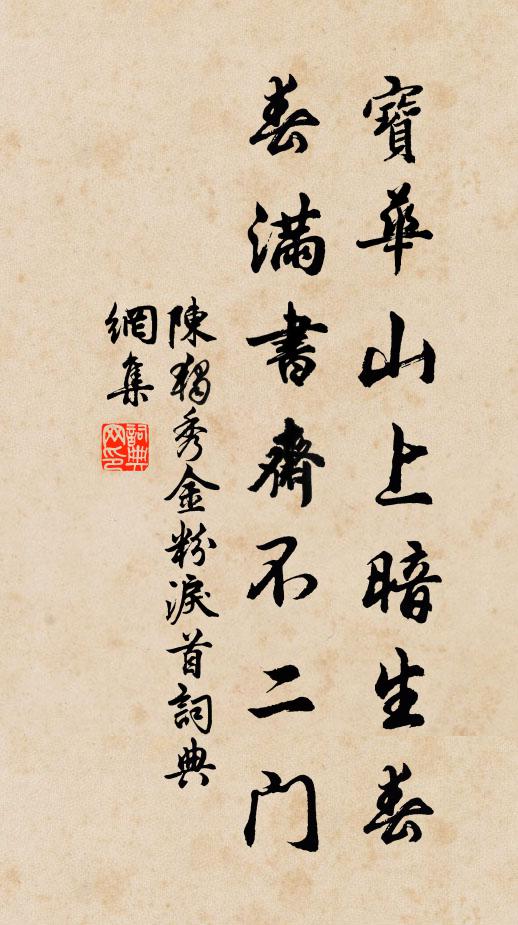 寶華山上暗生春
春滿書齋不二門
陳獨秀金粉淚首詞典
網集
詞典網印